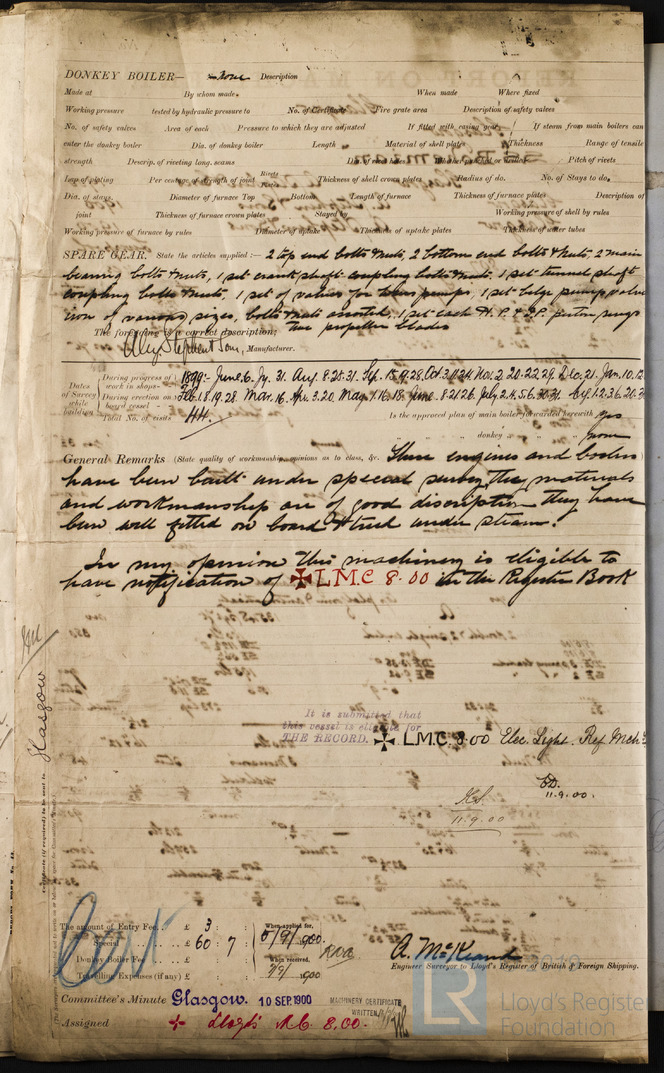 DONKEY BOILER— None Description
Made at By whom made When made Where fixed
Working pressure tested by hydraulic pressure to No. of Certificate Fire grate area Description of safety valves
No. of safety valves Area of each Pressure to which they are adjusted If fitted with casing gear If steam from main boilers can
enter the donkey boiler Dia. of donkey boiler Length Material of shell plates Thickness Range of tensile
strength Descrip. of riveting long. seams Pitch of rivets
Lap of plating Per centage of strength of joint Rivets Plates Thickness of shell crown plates Radius of do. No. of Stays to do.
Dia. of stays Diameter of furnace Top Bottom Length of furnace Thickness of furnace plates Description of
joint Thickness of furnace crown plates Stayed by Working pressure of shell by rules
Working pressure of furnace by rules Diameter of uptake Thickness of uptake plates Thickness of water tubes
SPARE GEAR. State the articles supplied:— 2 top end bolts & nuts, 2 bottom end bolts & nuts, 2 main
bearing bolts & nuts, 1 set crank shaft coupling bolts & nuts, 1 set tunnel shaft
coupling bolts & nuts, 1 set of valves for pumps, 1 set bilge pump valves
iron of various sizes, bolts & nuts assorted, 1 set each H.P. & I.P. piston rings
two propeller blades
The foregoing is a correct description;
Alex. Stephen & Sons, Manufacturer.
Dates of Survey while building
During progress of work in shops— 1899:- June 6. Jy. 31. Aug. 8. 25. 31. Sep. 15. 19. 28. Oct. 3. 11. 24. Nov. 2. 20. 22. 29. Dec. 21. Jan. 10. 12
During erection on board vessel— Feb. 1. 8. 19. 28. Mar. 16. Apr. 3. 20. May 1. 16. 18. June 8. 21. 26. July 2. 4. 5. 6. 30. 31. Aug. 1. 2. 3. 6. 20.
Total No. of visits 44. Is the approved plan of main boiler forwarded herewith yes
" " " donkey " " " none
General Remarks (State quality of workmanship, opinions as to class, &c. These engines and boilers
have been built under special survey, the materials
and workmanship are of good discription they have
been well fitted on board & tried under steam.
In my opinion this machinery is eligible to
have notification of ✠ L.M.C 8.00 in the Register Book
It is submitted that
this vessel is eligible for
THE RECORD. ✠ L.M.C. 8.00 Elec. Light. Ref. Mchy.
11.9.00.
11.9.00
Glasgow
Certificate (if required) to be sent to
The amount of Entry Fee.. £ 3 : : When applied for,
Special .. £ 60 : 7 : 5/9/1900
Donkey Boiler Fee .. £ : : When received,
Travelling Expenses (if any) £ : : 1900
A. McKeand
Engineer Surveyor to Lloyd's Register of British & Foreign Shipping.
Committee's Minute Glasgow. 10 SEP. 1900
MACHINERY CERTIFICATE
WRITTEN
Assigned + Lloyd's M.C. 8.00.
LR Lloyd's Register
Foundation